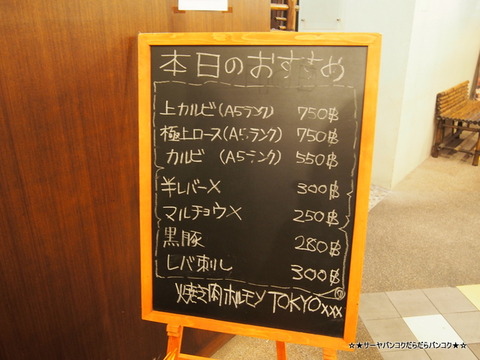 本日のおすすめ
上カルビ(A5ランク) 750฿
極上ロース(A5ランク) 750฿
カルビ (A5ランク) 550฿
半レバー✕ 300฿
マルチョウ✕ 250฿
黒豚 280฿
レバ刺し 300฿
焼き肉ホルモン TOKYO xxx
☆★サーヤバンコクだらだらバンコク★☆